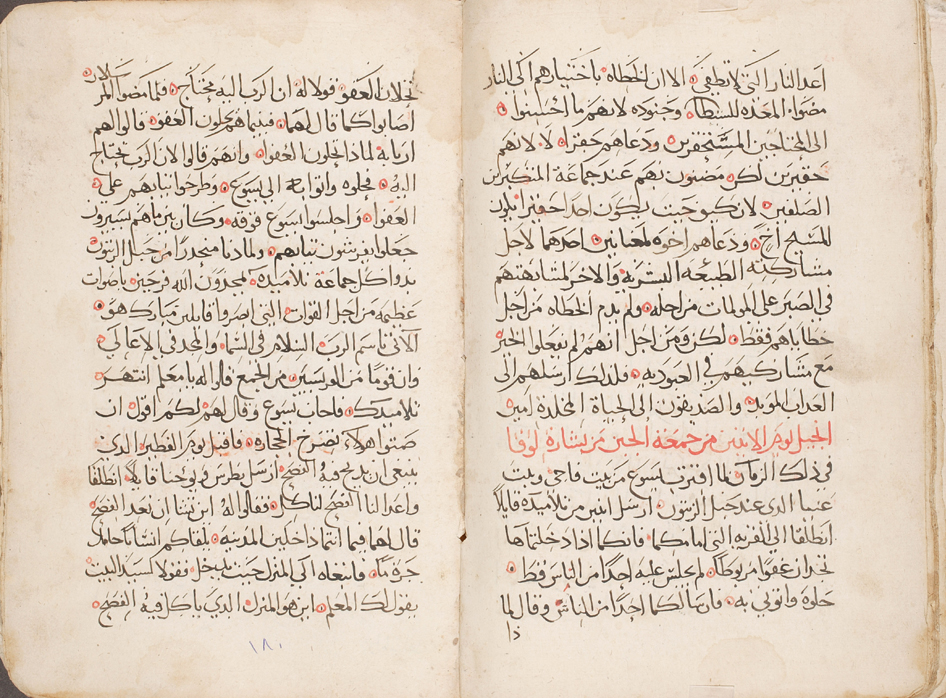 اعد النار التي لا تطفى الا ان الخطاه باختيارهم اكى النار
مضوا المعده للشيطان وجنوده لانهم ما احسنوا
الى المحتاجين المستحقرين ودعاهم حقرا لا لانهم
حقيرين لكن مضنون بهم عند جماعة المتكبرين
الصلفين لان كيو حيث يكون احدا حقيرا يكون
للمسيح اخ ودعاهم اخوه لمعنايين احدهما لاجل
مشاركته الطبيعه البشرية والاخر لمشابهتهم
في الصبر على المولمات من اجله ولم يدم الخطاه من اجل
خطاياهم فقط لكن ومن اجل انهم لم يفعلوا الخير
مع مشاركيهم في العبوديه ولذلك ارسلهم الى
العداب الموبد والصديقون الى الحياة المخلدة امين
انجيل يوم الاثنين من جمعة الجبن من بشارة لوقا
في ذلك الزمان لما اقترب يسوع من بيت فاجي وبيت
عنيا الدي عند جبل الزيتون ارسل اثنين من تلاميده قايلا
انطلقا الى القريه التي امامكما فانكما اذا دخلتماها
تجدان عفوا مربوطا لم يجلس عليه احدا من الناس قط
حلوه واتوني به فان سالكما احدا من الناس وقال لما
ذا
تحلان العفو فقولا له ان الرب اليه محتاج فلما مضوا المر
سلان
اصابوا كما قال لهما فبينما هم يحلون العفو قالوا لهم
اربابه لماذا تحلون العفوا وانهم قالوا لان الرب محتاج
اليه فجاوه واتوا به الى يسوع وطرحوا ثيابهم على
العفوا واجلسوا يسوع فوقه وكان بينما هم يسيرون
جعلوا يفرشون ثيابهم ولما دنا منحدرا من جبل الزيتون
بدوا كل جماعة تلاميده يمجدون الله فرحين باصوات
عظيمه من اجل القوات التي ابصروا قايلين مبارك هو
الاتي باسم الرب السلام في السما والمجد في الاعالي
وان قوما من الفريسيين من الجمع قالوا له يا معلم انتهر
تلاميدك فاجاب يسوع وقال لهم لكم اقول ان
صمتوا هولاء تصرخ الحجاره فاقبل يوم الفطير الدي
ينبغي ان يدبح فيه الفصح ارسل بطرس ويوحنا قايلا انطلقا
واعدا لنا الفصح لناكل فقالوا له اين تشا ان نعد الفصح
قال لهما فيما انتما داخلين المدينه يلقاكم انسانا حاملا
جرة ما فاتبعاه الى المنزل حيث يدخل فقولا لسيد البيت
يقول لك المعلم اين هو المنزل الدي ياكل فيه الفصح
١٨٠